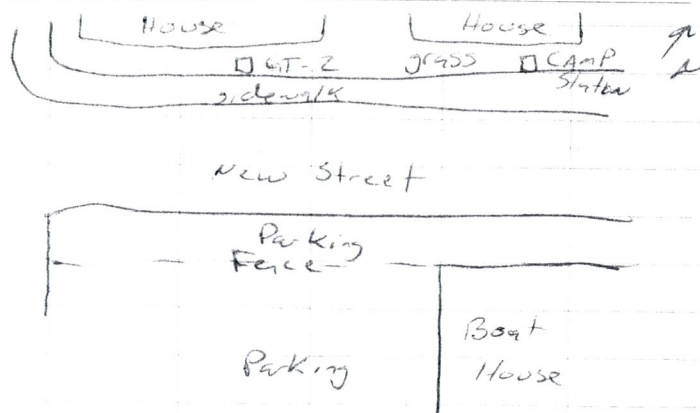 House
House
GT-2
grass
CAMP
Station
sidewalk
N
New Street
Parking
Fence
Parking
Boat
House